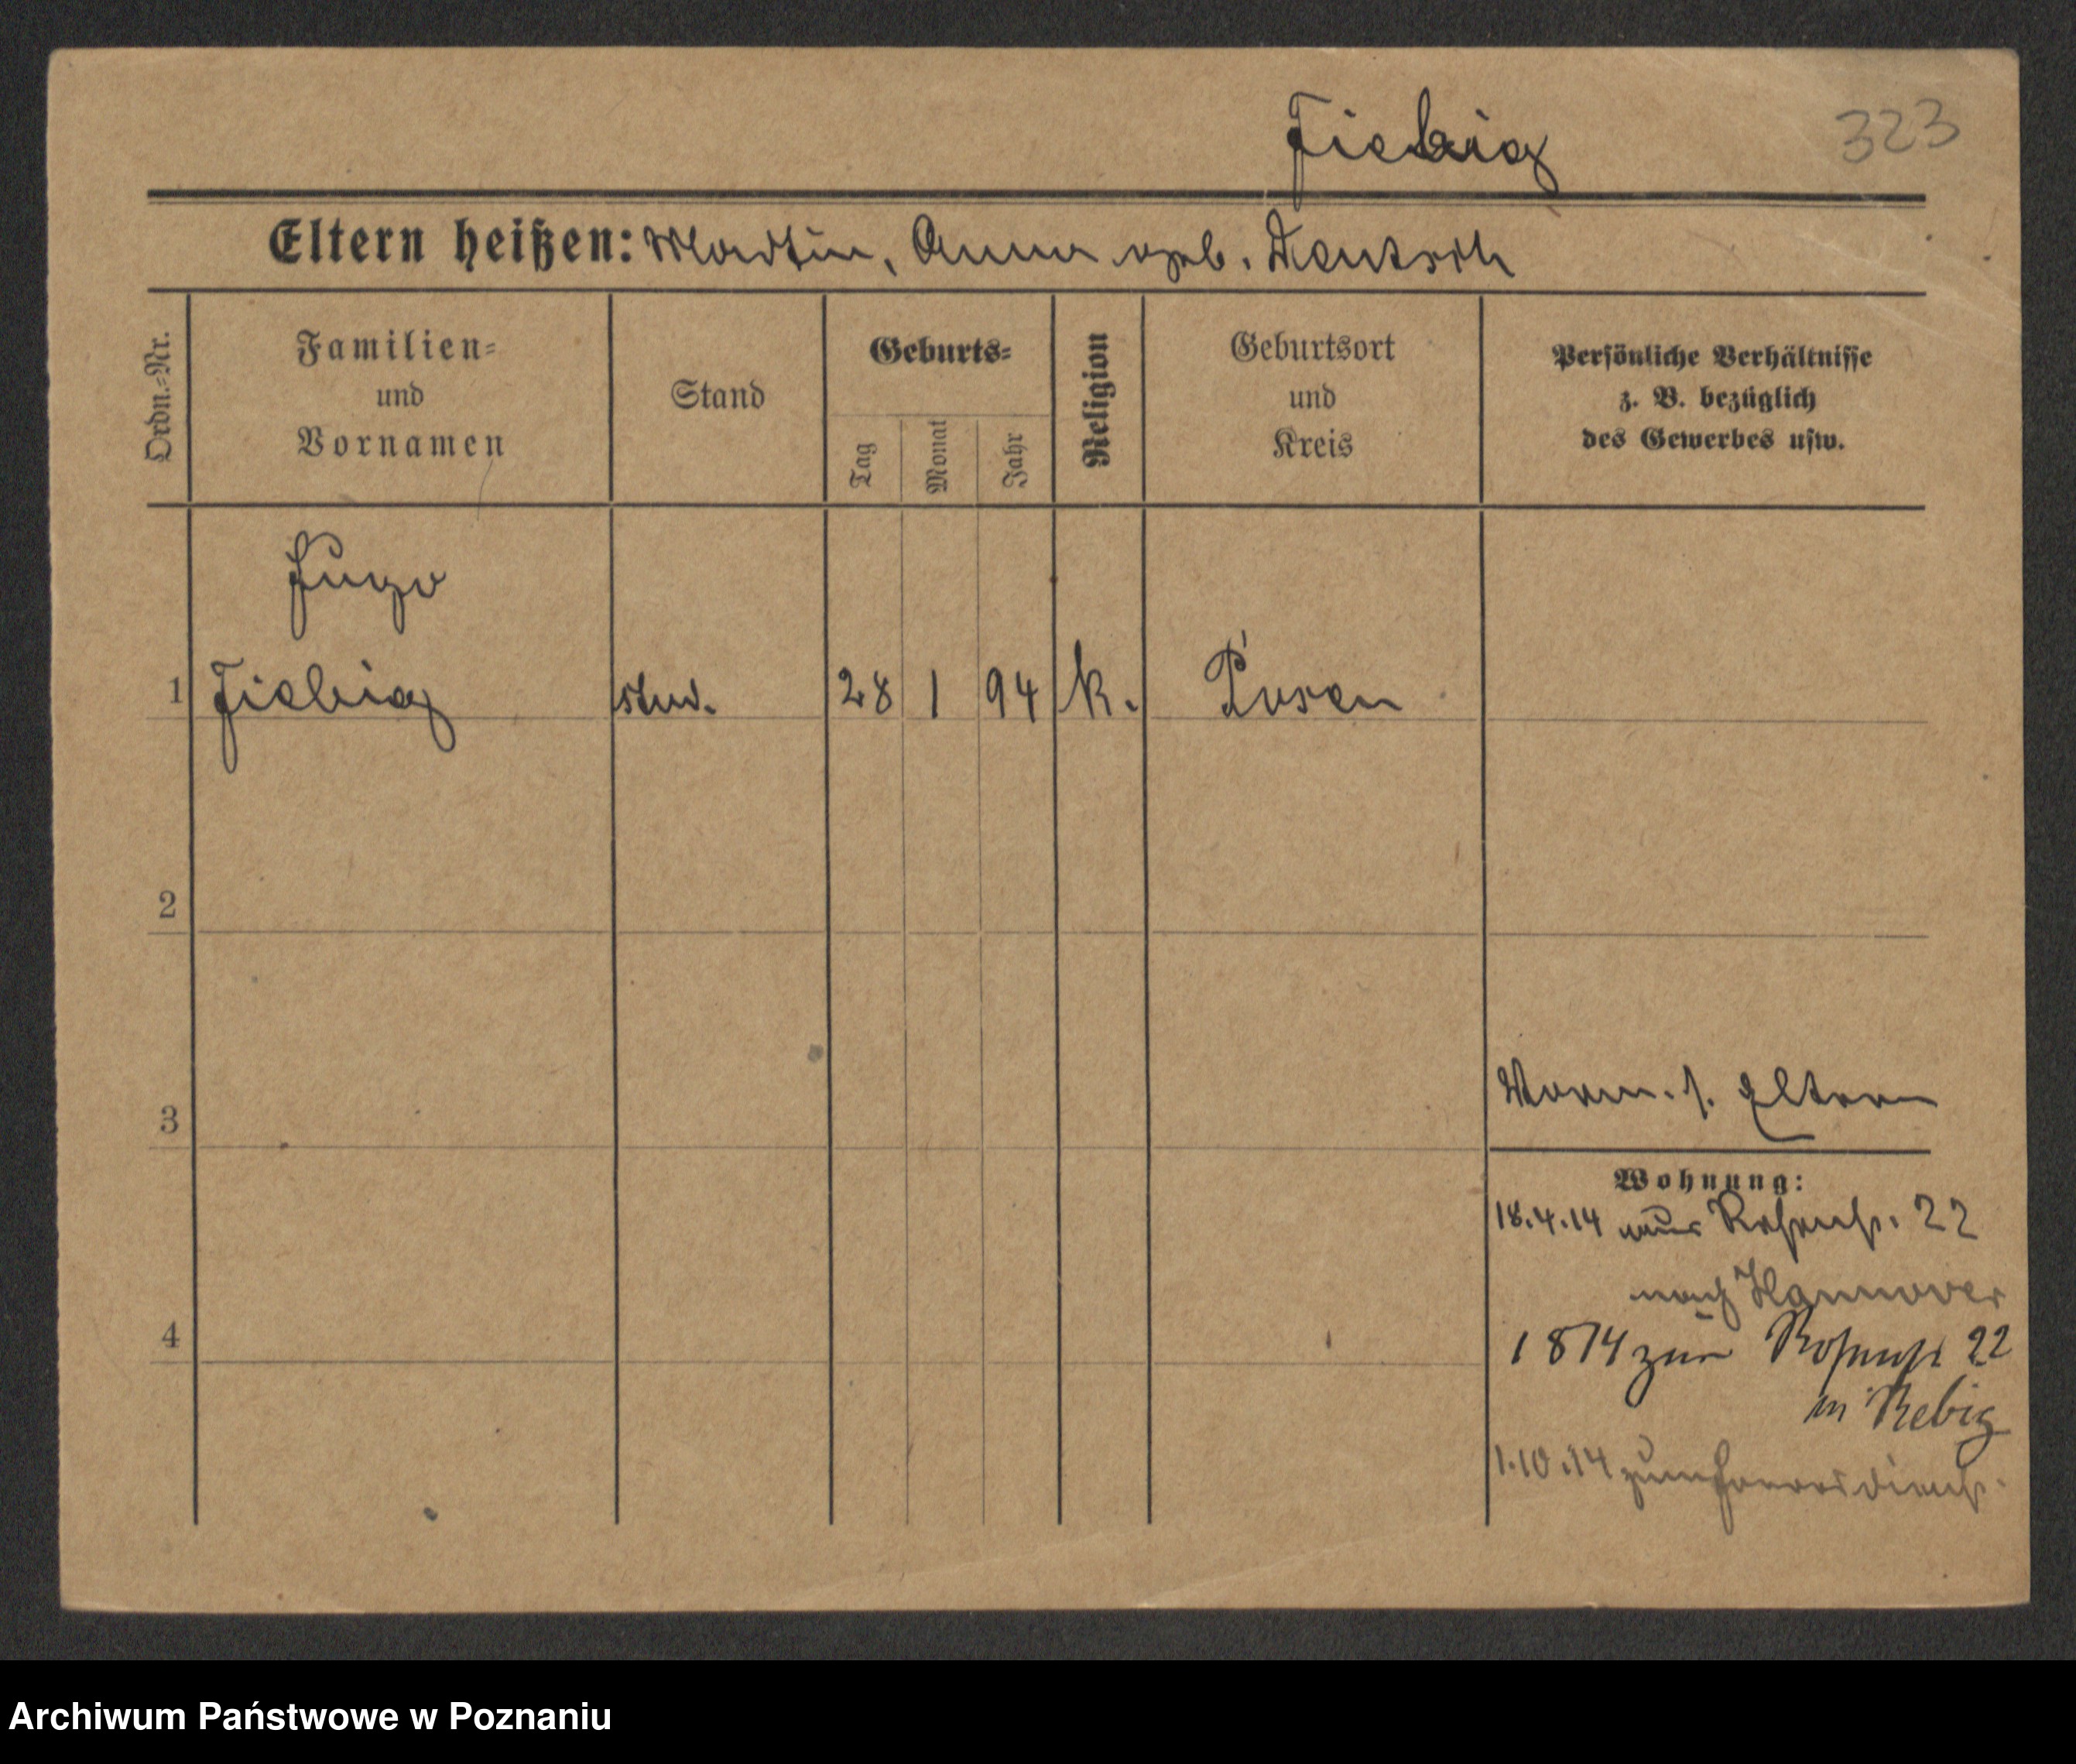 Fiebig
323
Eltern heißen: Martin, Anna geb. Deutsch
Ordn.-Nr.
Familien-
und
Vornamen
Stand
Geburts-
Tag
Monat
Jahr
Religion
Geburtsort
und
Kreis
Persönliche Verhältnisse
z. B. bezüglich
des Gewerbes usw.
Hugo
1 Fiebig stud. 28 1 94 k. Posen
2
3
Vorm. s. Eltern
Wohnung:
18.4.14 aus Rosenstr. 22
nach Hannover
4
1 8 14 zur Rosenstr 22
1.10.14 zum Heeresdienst.
Archiwum Państwowe w Poznaniu